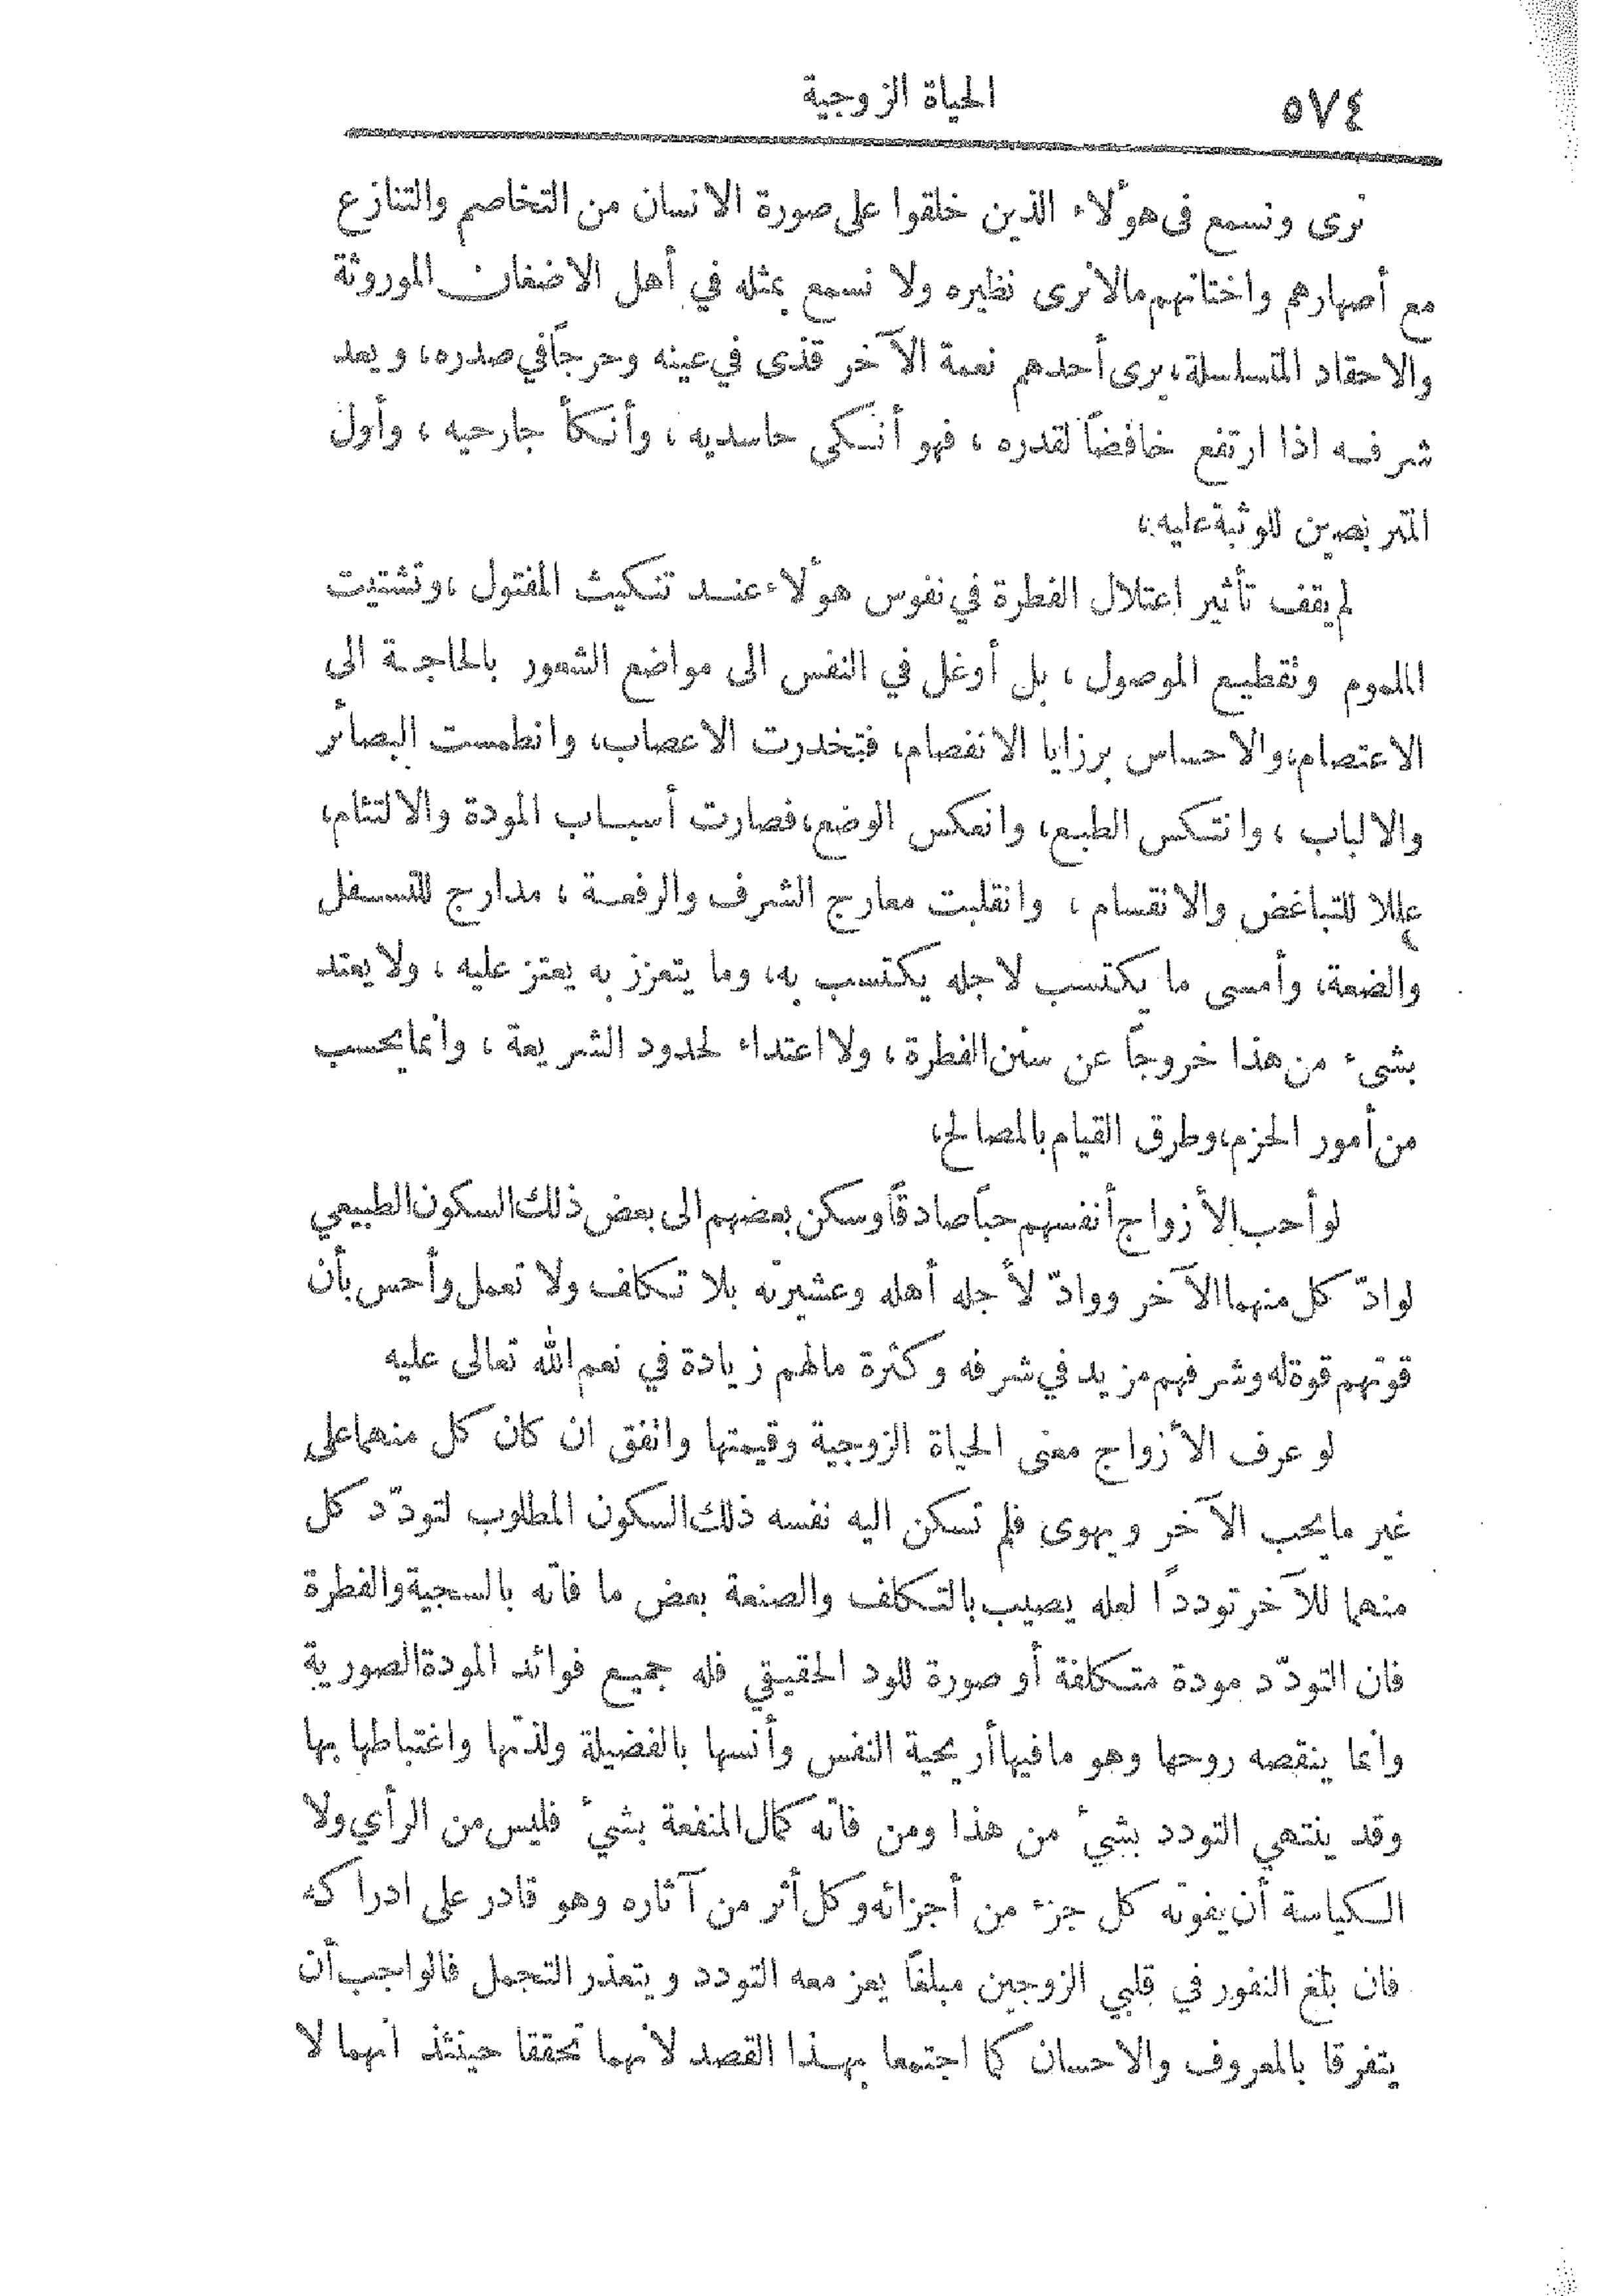 ٥٧٤
الحياة الزوجية
نرى ونسمع فى هؤلاء الذين خلقوا على صورة الانسان من التخاصم والتنازع
مع أصهارهم واختانهم مالانرى نظيره ولا نسمع بمثله في أهل الاضغان الموروثة
والاحقاد المتسلسلة، يرى أحدهم نعمة الآخر قذى في عينه وحرجاً في صدره، ويعد
شرفه اذا ارتفع خافضاً لقدره ، فهو أنكى حاسديه ، وأنكأ جارحيه ، وأول
المتربصين للوثبة عليه،
لم يقف تأثير اعتلال الفطرة في نفوس هؤلاء عند تنكيث المفتول ، وتشتيت
الملموم وتقطيع الموصول ، بل أوغل في النفس الى مواضع الشعور بالحاجة الى
الاعتصام، والاحساس برزايا الانفصام، فتخدرت الاعصاب، وانطمست البصائر
والالباب ، وانتكس الطبع، وانعكس الوضع، فصارت أسباب المودة والالتئام،
عللا للتباغض والانقسام ، وانقلبت معارج الشرف والرفعة ، مدارج للتسفل
والضعة، وأمسى ما يكتسب لاجله يكتسب به، وما يتعزز به يعتز عليه ، ولا يعتد
بشىء من هذا خروجاً عن سنن الفطرة ، ولا اعتداء لحدود الشريعة ، وانما يحسب
من أمور الحزم، وطرق القيام بالمصالح،
لو أحب الأزواج أنفسهم حباً صادقاً وسكن بعضهم الى بعض ذلك السكون الطبيعي
لوادّ كل منهما الآخر ووادّ لأجله أهله وعشيرته بلا تكلف ولا تعمل وأحس بأن
قوتهم قوة له وشرفهم مزيد في شرفه وكثرة مالهم زيادة في نعم الله تعالى عليه
لو عرف الأزواج معنى الحياة الزوجية وقيمتها واتفق ان كان كل منهما على
غير ما يحب الآخر ويهوى فلم تسكن اليه نفسه ذلك السكون المطلوب لتودّد كل
منهما للآخر توددًا لعله يصيب بالتكلف والصنعة بعض ما فاته بالسجية والفطرة
فان التودّد مودة متكلفة أو صورة للود الحقيقي فله جميع فوائد المودة الصورية
وانما ينقصه روحها وهو ما فيها أريحية النفس وأنسها بالفضيلة ولذتها واغتباطها بها
وقد ينتهي التودد بشئ من هذا ومن فاته كمال المنفعة بشئ فليس من الرأي ولا
الكياسة أن يفوته كل جزء من أجزائه وكل أثر من آثاره وهو قادر على ادراكه
فان بلغ النفور في قلبي الزوجين مبلغاً يعز معه التودد ويتعذر التجمل فالواجب أن
يتفرقا بالمعروف والاحسان كما اجتمعا بهذا القصد لانهما تحققا حينئذ انهما لا